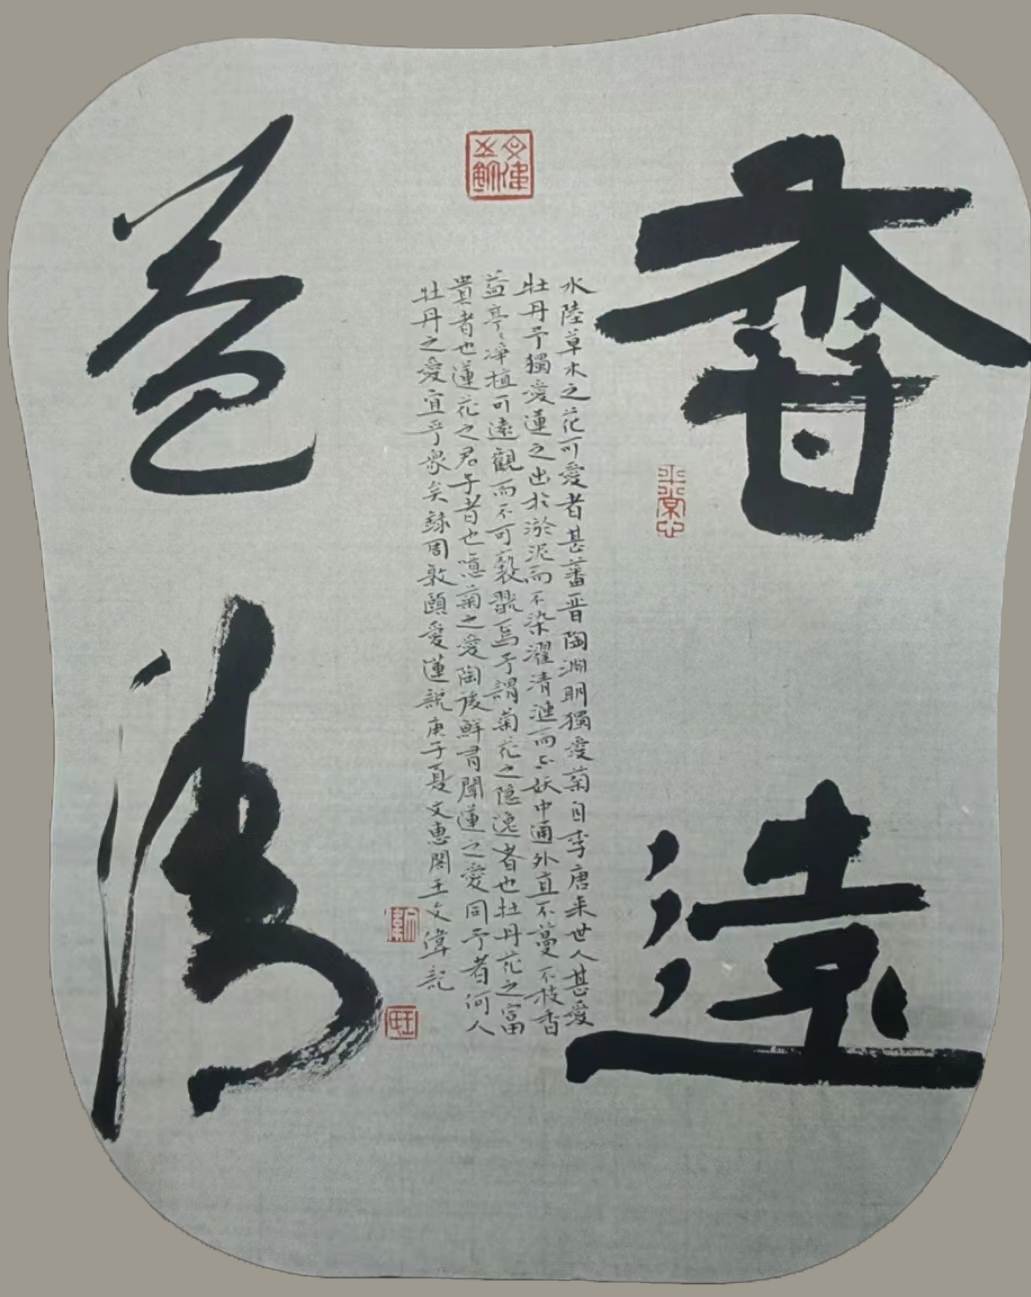 香遠
水陸草木之花可愛者甚蕃晋陶淵明獨愛菊自李唐来世人甚愛
牡丹予獨愛蓮之出於淤泥而不染濯清漣而不妖中通外直不蔓不枝香
益亭亭净植可遠觀而不可褻翫焉予謂菊花之隱逸者也牡丹花之富
貴者也蓮花之君子者也噫菊之愛陶後鮮有聞蓮之愛同予者何人
牡丹之愛宜乎衆矣録周敦頤愛蓮説庚子夏文惠閣王文偉記
益清